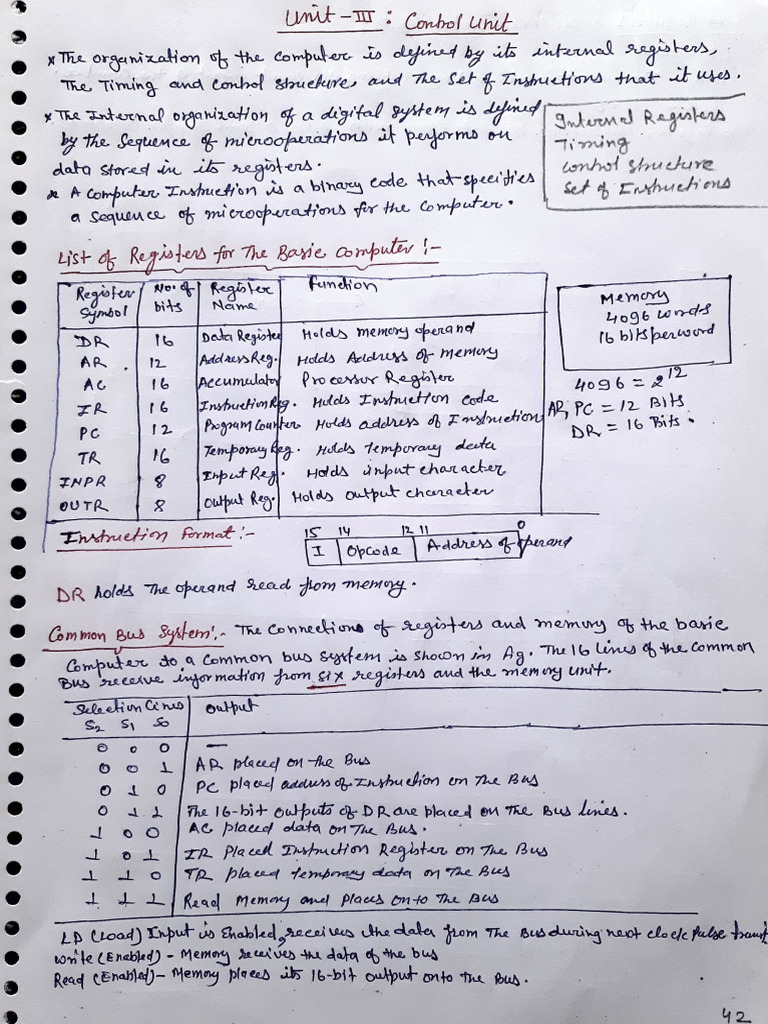 Unit - III : Control Unit
* The organization of the computer is defined by its internal registers,
The Timing and control structure, and The Set of Instructions that it uses.
* The Internal organization of a digital system is defined
by the Sequence of microoperations it performs on
data stored in its registers.
* A Computer Instruction is a binary code that specifies
a sequence of microoperations for the Computer.
Internal Registers
Timing
Control Structure
Set of Instructions
List of Registers for The Basic Computer :-
Register Symbol | No. of bits | Register Name | Function
DR 16 Data Register Holds memory operand
AR 12 Address Reg. Holds Address of memory
AC 16 Accumulator Processor Register
IR 16 Instruction Reg. Holds Instruction code
PC 12 Program Counter Holds address of Instruction
TR 16 Temporary Reg. Holds Temporary data
INPR 8 Input Reg. Holds input character
OUTR 8 Output Reg. Holds output character
Memory
4096 words
16 bits per word
4096 = 2^12
AR, PC = 12 Bits
DR = 16 Bits.
Instruction Format :-
15 14 12 11 0
I Opcode Address of operand
DR holds The operand read from memory.
Common Bus System :- The Connections of registers and memory of the basic
Computer to a Common bus system is shown in Ag. The 16 lines of the Common
Bus receive information from six registers and the memory unit.
Selection Lines Output
S2 S1 S0
0 0 0 —
0 0 1 AR placed on the Bus
0 1 0 PC placed address of Instruction on The Bus
0 1 1 The 16-bit outputs of DR are placed on The Bus lines.
1 0 0 AC placed data on The Bus.
1 0 1 IR Placed Instruction Register on The Bus
1 1 0 TR placed Temporary data on The Bus
1 1 1 Read Memory and Places onto The Bus
LD (Load) Input is Enabled, receives the data from The Bus during next clock pulse
Write (Enabled) - Memory receives the data of the bus
Read (Enabled) - Memory places its 16-bit output onto The Bus.
42